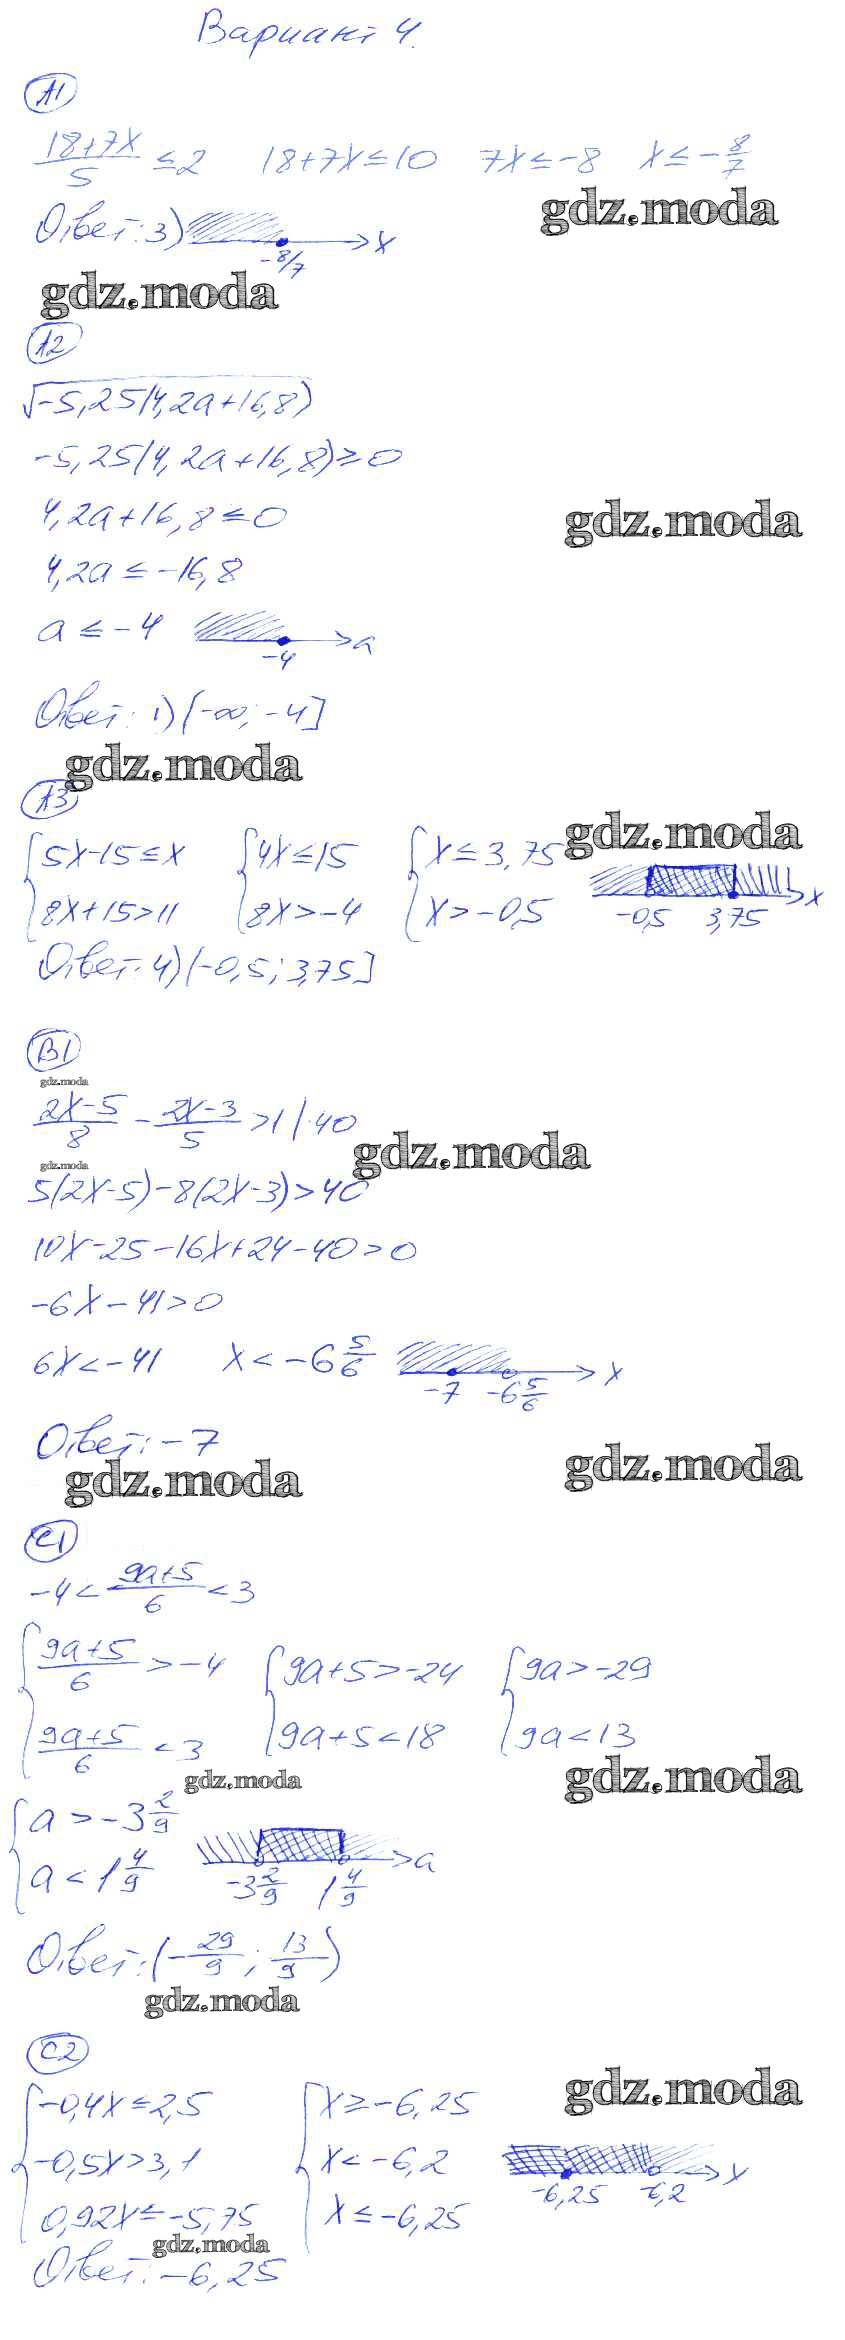 Вариант 4.
А1
(18+7x)/5 ≤ 2   18+7x≤10   7x≤-8   x≤-8/7
gdz.moda
Ответ: 3)   -8/7   x
gdz.moda
А2
√(-5,25(4,2a+16,8))
-5,25(4,2a+16,8)≥0
4,2a+16,8≤0
gdz.moda
4,2a≤-16,8
a≤-4   -4   a
Ответ: 1) (-∞; -4]
gdz.moda
А3
gdz.moda
{5x-15≤x   {4x≤15   {x≤3,75
{8x+15>11   {8x>-4   {x>-0,5   -0,5   3,75   x
Ответ: 4) (-0,5; 3,75]
В1
gdz.moda
(2x-5)/8 - (2x-3)/5 >1 |·40
gdz.moda
gdz.moda
5(2x-5)-8(2x-3)>40
10x-25-16x+24-40>0
-6x-41>0
6x<-41   x<-6 5/6   -7   -6 5/6   x
Ответ: -7
gdz.moda
gdz.moda
С1
-4 < (9a+5)/6 < 3
{(9a+5)/6 > -4   {9a+5>-24   {9a>-29
{(9a+5)/6 < 3   {9a+5<18   {9a<13
gdz.moda
gdz.moda
{a>-3 2/9
{a<1 4/9   -3 2/9   1 4/9   a
Ответ: (-29/9; 13/9)
gdz.moda
С2
gdz.moda
{-0,4x≤2,5   {x≥-6,25
{-0,5x>3,1   {x<-6,2   -6,25   -6,2   x
{0,92x≤-5,75   {x≤-6,25
gdz.moda
Ответ: -6,25